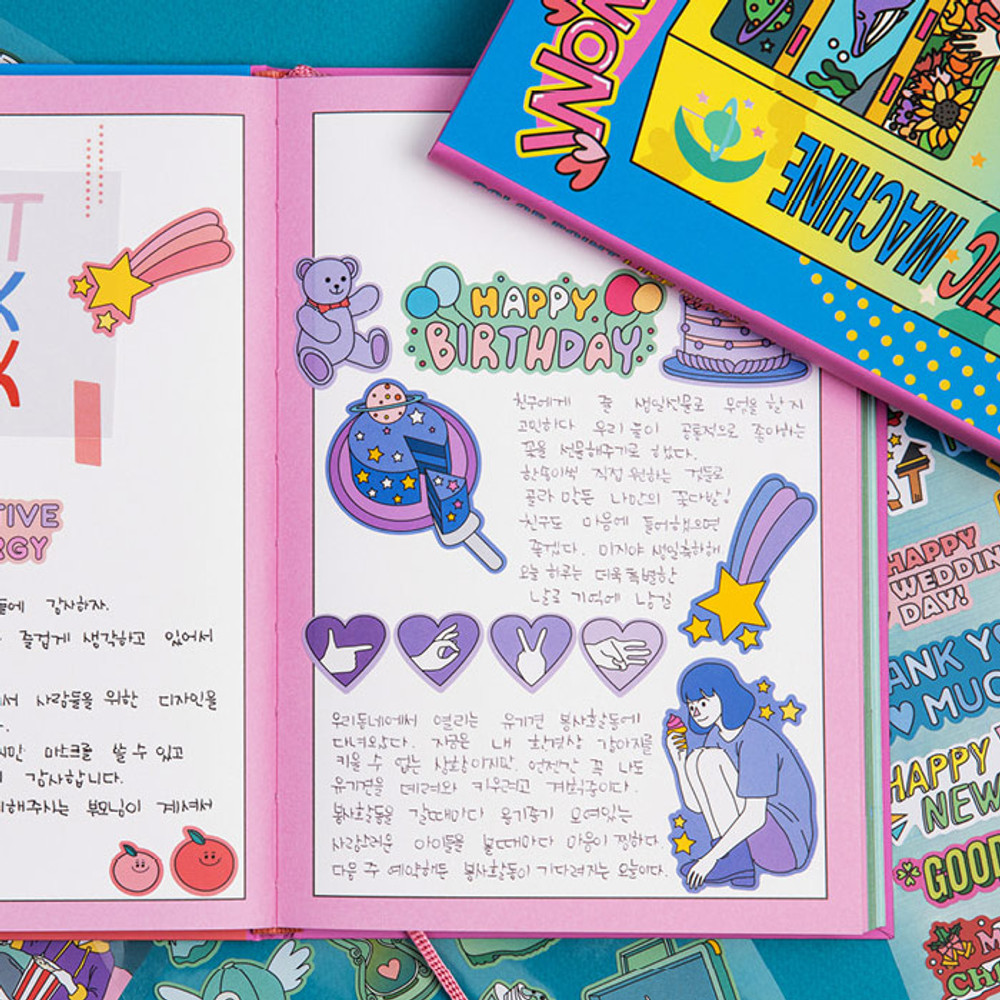 T
K
K
TIVE
RGY
들에 감사하자.
즐겁게 생각하고 있어서
서 사람들을 위한 디자인을
지만 마스크를 쓸 수 있고
감사합니다.
해주시는 부모님이 계셔서
HAPPY
BIRTHDAY
친구에게 줄 생일선물로 무엇을 할지
고민하다 우리 둘이 공통적으로 좋아하는
꽃을 선물해주기로 했다.
한송이씩 직접 원하는 것들로
골라 만든 나만의 꽃다발!
친구도 마음에 들어했으면
좋겠다. 미지야 생일축하해
오늘 하루는 더욱 특별한
날로 기억에 남길
우리동네에서 열리는 유기견 봉사활동에
다녀왔다. 지금은 내 환경상 강아지를
키울 수 없는 상황이지만, 언젠간 꼭 나도
유기견을 데려와 키우려고 계획중이다.
봉사활동을 갈때마다 옹기종기 모여있는
사랑스러운 아이들을 볼때마다 마음이 찡하다.
다음 주 예약해둔 봉사활동이 기다려지는 오늘이다.
MACHINE
TIC
HAPPY
WEDDING
DAY!
ANK YO
MUC
HAPPY
NEW
GOOD